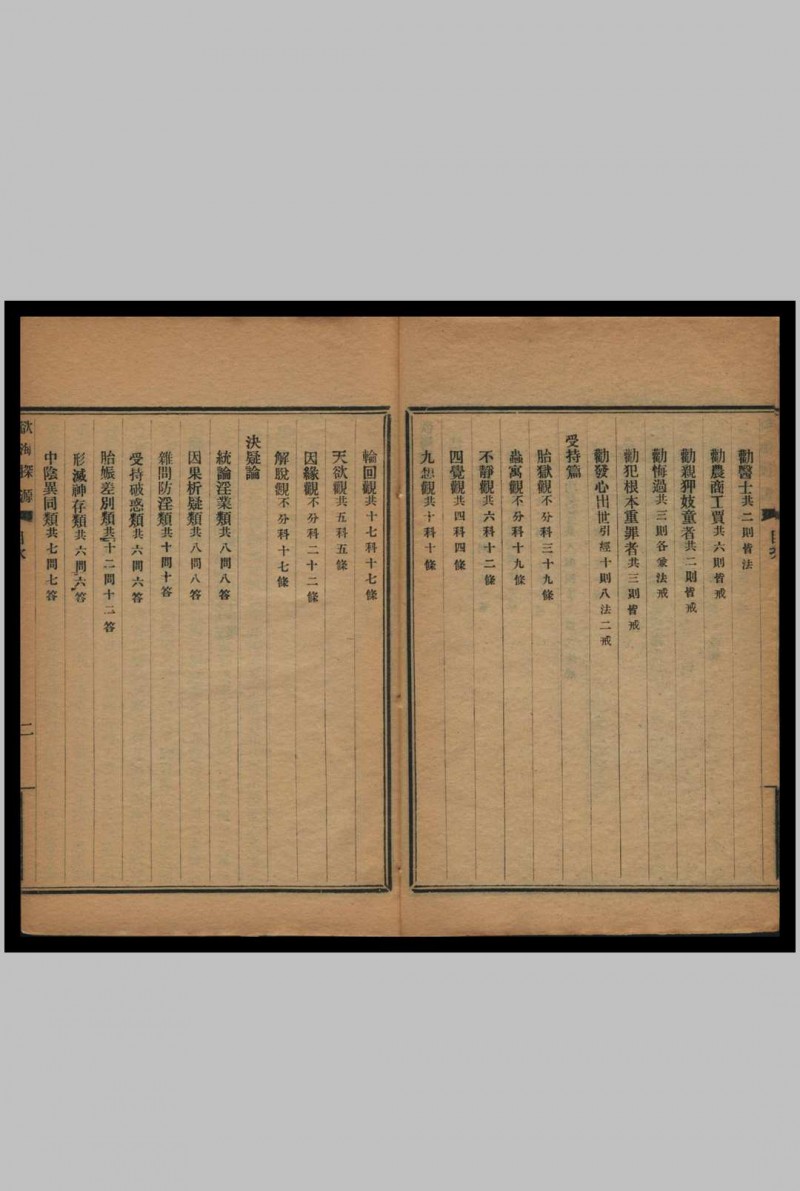 勸醫士共二則皆法
勸農商工賈共六則皆戒
勸親狎妓童者共二則皆戒
勸悔過共三則各兼法戒
勸犯根本重罪者共三則皆戒
勸發心出世引經十則八法二戒
受持篇
胎獄觀不分科三十九條
蟲寓觀不分科十九條
不靜觀共六科十二條
四覺觀共四科四條
九想觀共十科十條
輪回觀共十七科十七條
天欲觀共五科五條
因緣觀不分科二十二條
解脫觀不分科十七條
決疑論
統論淫業類共八問八答
因果析疑類共八問八答
雜問防淫類共十問十答
受持破惑類共六問六答
胎娠差別類共十二問十二答
形滅神存類共六問六答
中陰異同類共七問七答
欲海探源
二